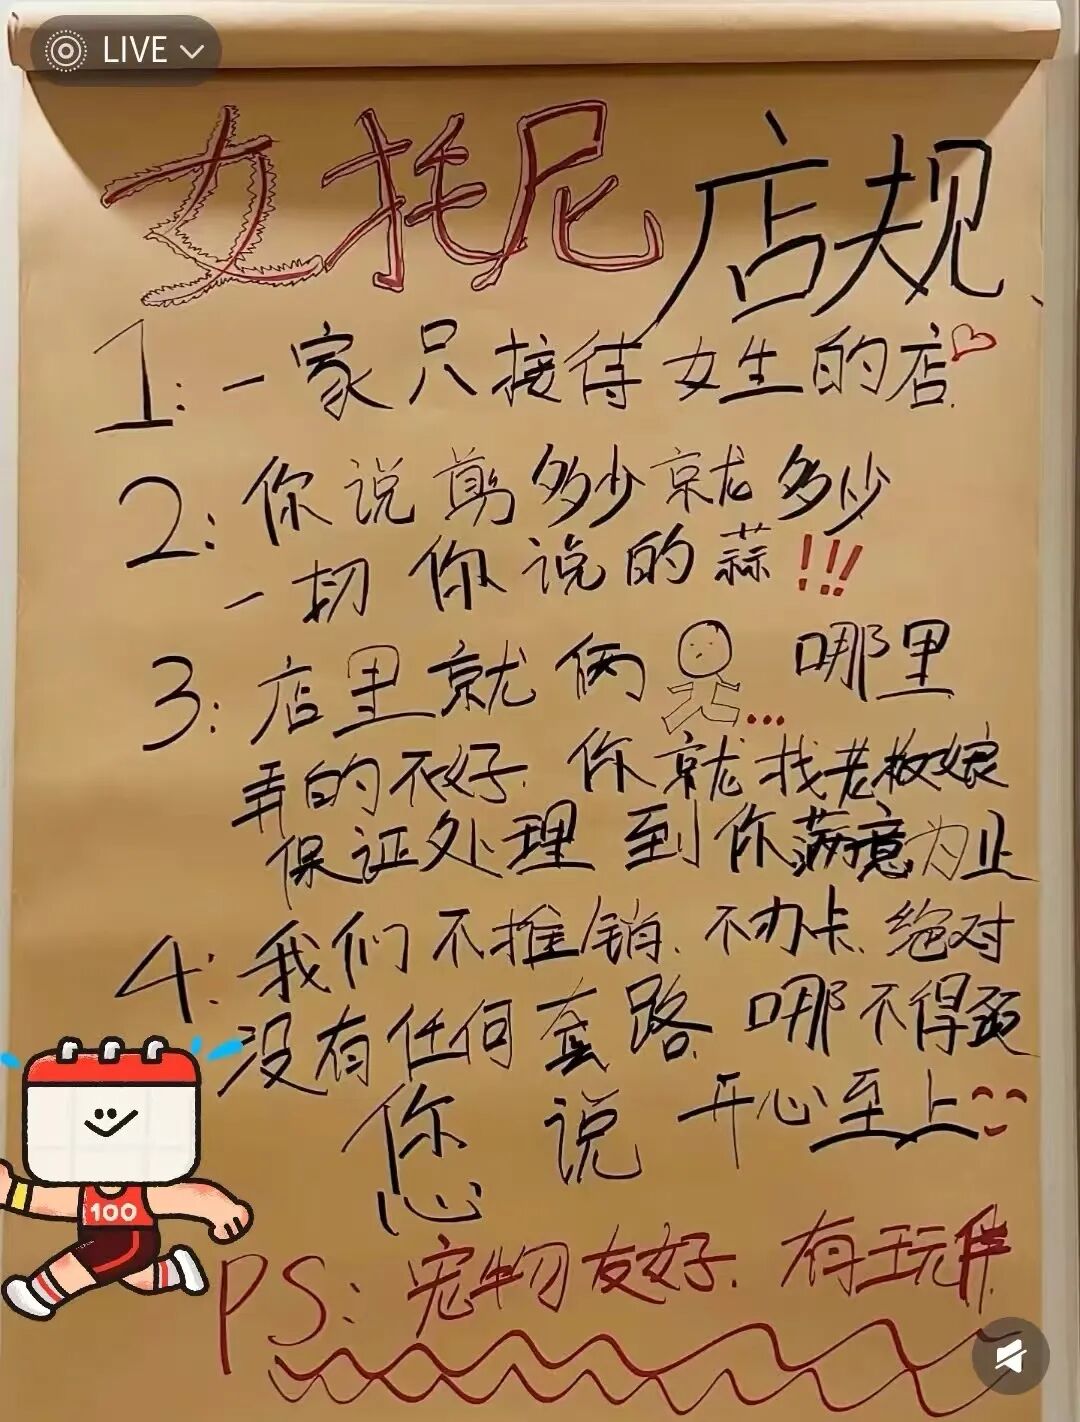 LIVE
女托尼店规
1:一家只接待女生的店
2:你说剪多少就多少
一切你说的蒜!!!
3:店里就俩...哪里
弄的不好.你就找老板娘
保证处理到你满意为止
4:我们不推销.不办卡.绝对
没有任何套路.哪不得劲
您说开心至上
PS:宠物友好.有玩伴
100